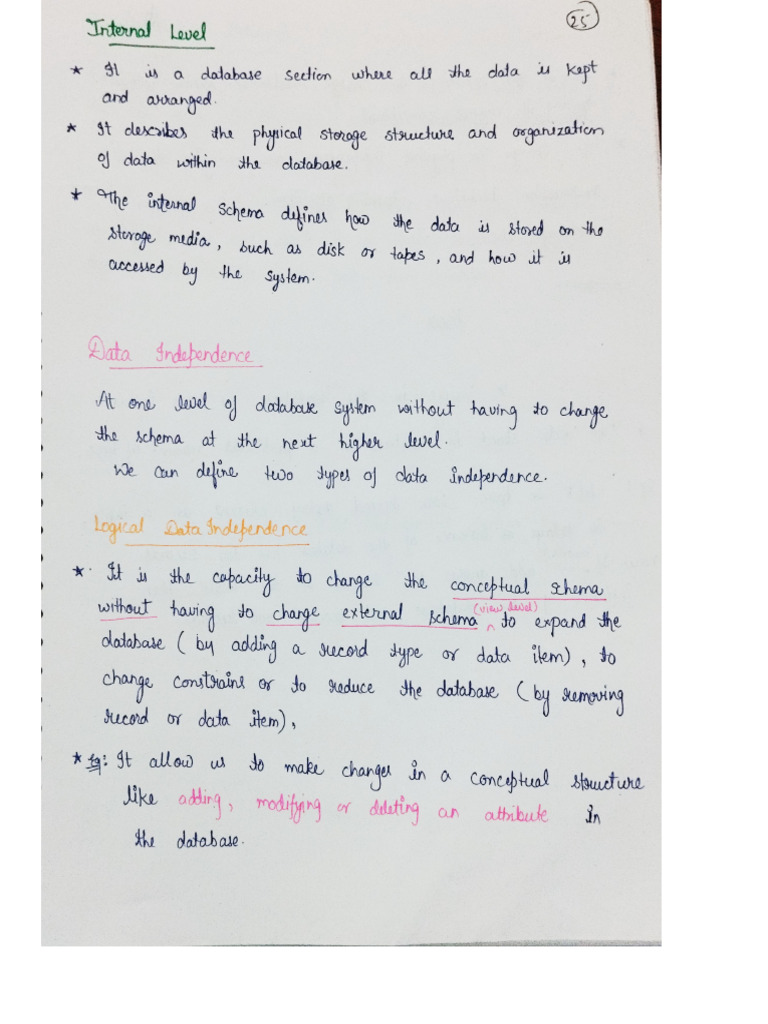 25
Internal Level
* It is a database section where all the data is kept
and arranged.
* It describes the physical storage structure and organization
of data within the database.
* The internal schema defines how the data is stored on the
storage media, such as disk or tapes, and how it is
accessed by the system.
Data Independence
At one level of database system without having to change
the schema at the next higher level.
We can define two types of data independence.
Logical Data Independence
* It is the capacity to change the conceptual schema
without having to change external schema (view level) ^ to expand the
database (by adding a record type or data item), to
change constrains or to reduce the database (by removing
record or data item),
* Eg: It allow us to make changes in a conceptual structure
like adding, modifying or deleting an attribute in
the database.